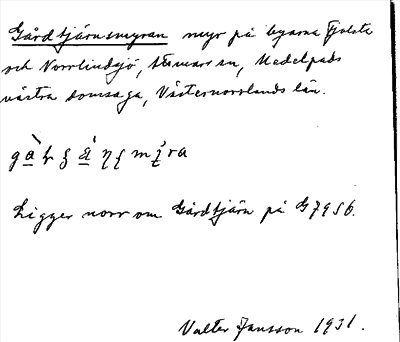 Gårdtjärnsmyran myr på byarna Fjolsta
och Norrlindsjö, Stimarr sn, Medelpads
västra domsaga, Västernorrlands län.
Ligger norr om Gårdtjärn på G 7956.
Valter Jansson 1931.